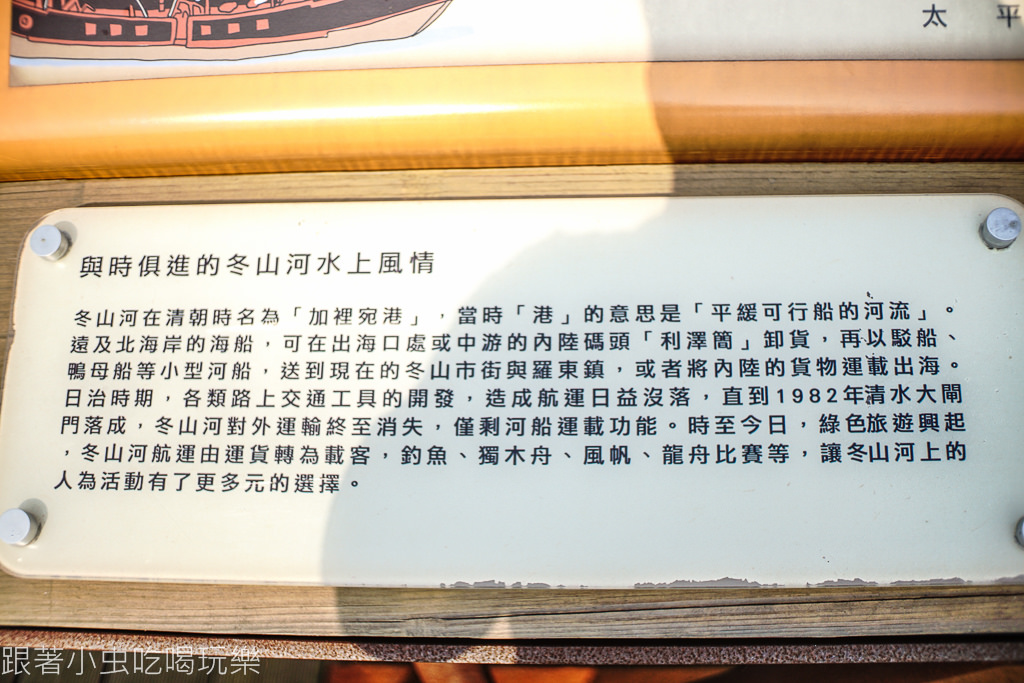 太 平
與時俱進的冬山河水上風情
冬山河在清朝時名為「加裡宛港」，當時「港」的意思是「平緩可行船的河流」。
遠及北海岸的海船，可在出海口處或中游的內陸碼頭「利澤簡」卸貨，再以駁船、
鴨母船等小型河船，送到現在的冬山市街與羅東鎮，或者將內陸的貨物運載出海。
日治時期，各類路上交通工具的開發，造成航運日益沒落，直到1982年清水大閘
門落成，冬山河對外運輸終至消失，僅剩河船運載功能。時至今日，綠色旅遊興起
，冬山河航運由運貨轉為載客，釣魚、獨木舟、風帆、龍舟比賽等，讓冬山河上的
人為活動有了更多元的選擇。
跟著小虫吃喝玩樂